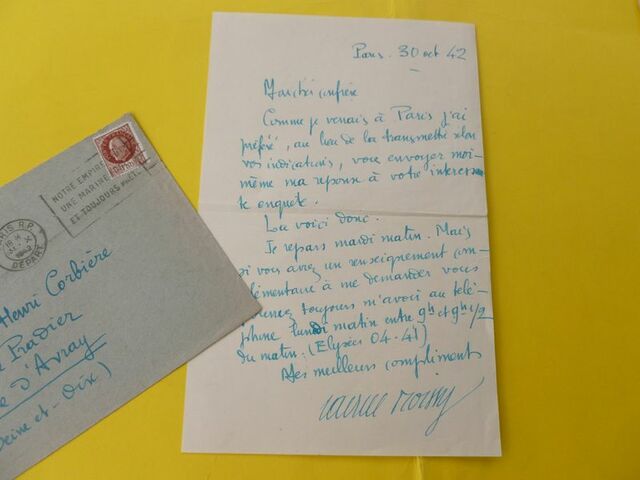 Paris. 30 oct 42
Mon cher confrère
Comme je venais à Paris j'ai
préféré, au lieu de la transmettre selon
vos indications, vous envoyer moi-
même ma réponse à votre intéressan-
te enquête.
La voici donc.
Je repars mardi matin. Mais
si vous avez un renseignement com-
plémentaire à me demander vous
pouvez toujours m'avoir au télé-
phone lundi matin entre 9h et 9h 1/2
du matin. (Elysées 04-41)
Mes meilleurs compliments
NOTRE EMPIRE
UNE MARINE
ET TOUJOURS
PARIS R.P.
DEPART
Henri Corbière
Pradier
d'Avray
Seine-et-Oise)